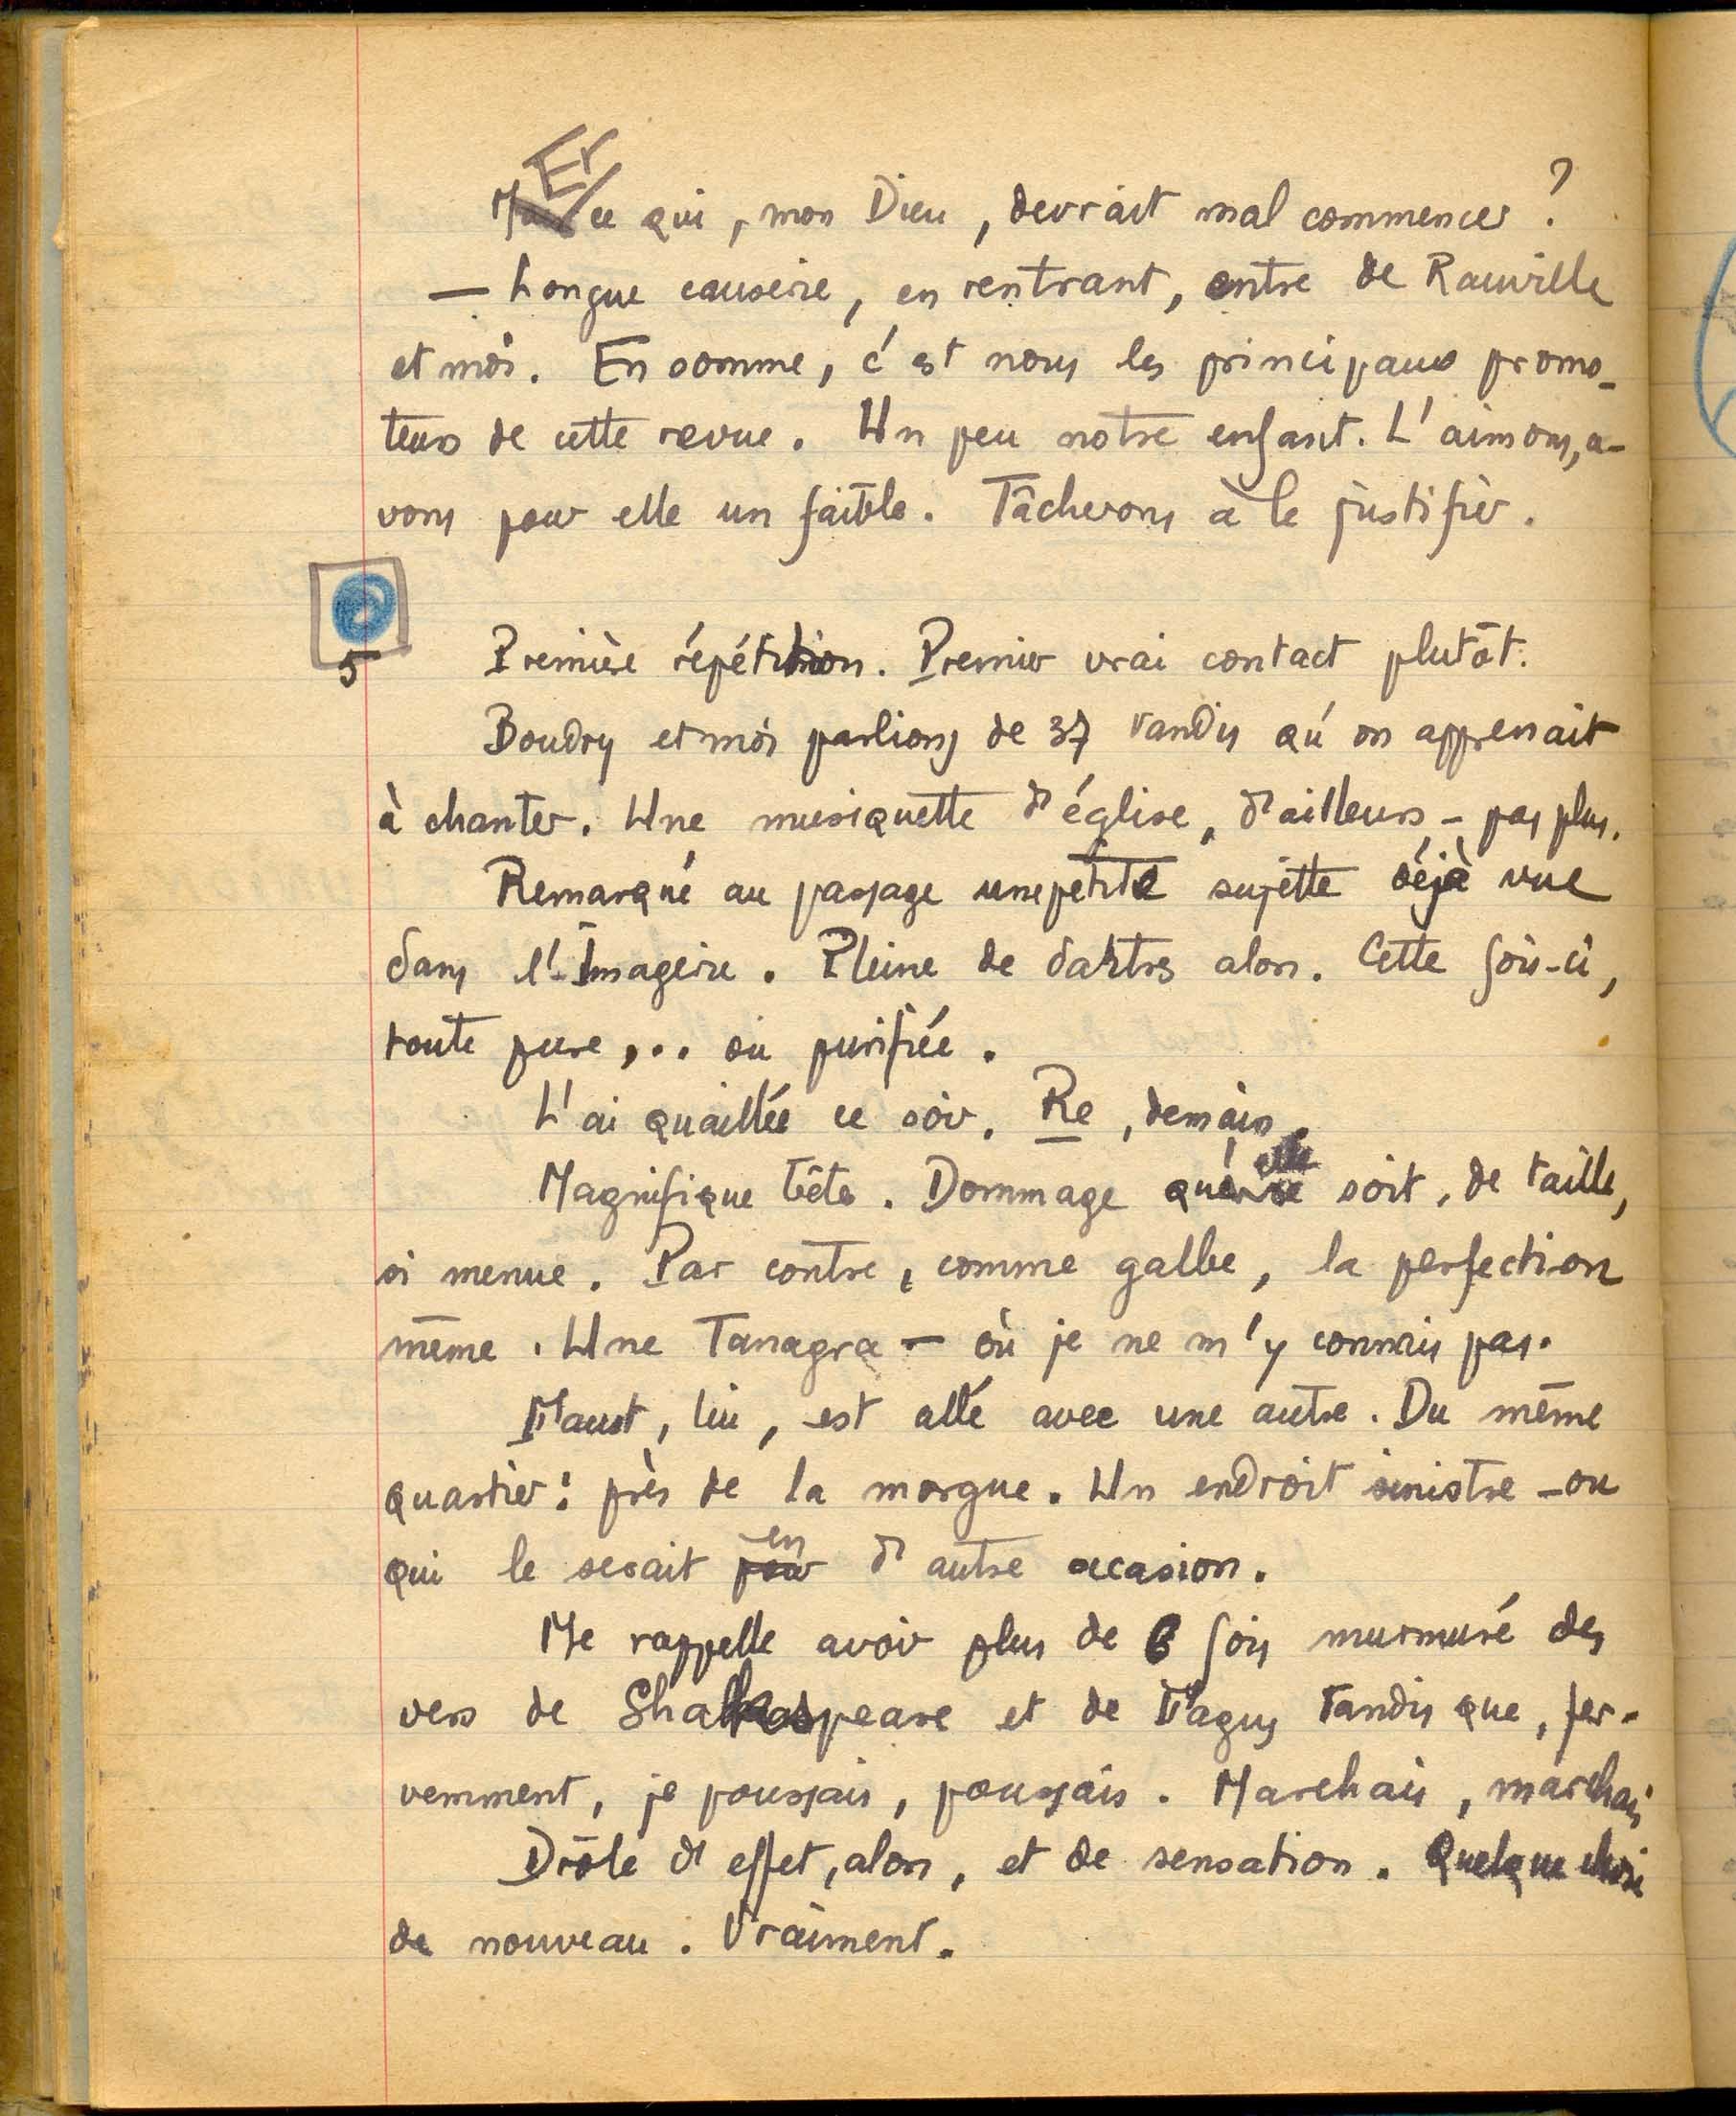 Et ce qui, mon Dieu, devrait mal commencer ?
— Longue causerie, en rentrant, entre de Rauville
et moi. En somme, c'est nous les principaux promo-
teurs de cette revue. Un peu notre enfant. L'aimons, a-
vons pour elle un faible. Tâcherons à le justifier.
5 Première répétition. Premier vrai contact plutôt.
Boudry et moi parlions de 37 tandis qu'on apprenait
à chanter. Une musiquette d'église, d'ailleurs - pas plus.
Remarqué au passage une petite sujette déjà vue
dans l'Imagerie. Pleine de dartres alors. Cette fois-ci,
toute pure,... ou purifiée.
L'ai quaillée ce soir. Re, demain.
Magnifique tête. Dommage qu'elle soit, de taille,
si menue. Par contre, comme galbe, la perfection
même. Une Tanagra — ou je ne m'y connais pas.
Faust, lui, est allé avec une autre. Du même
quartier : près de la morgue. Un endroit sinistre - ou
qui le serait pour en d'autre occasion.
Me rappelle avoir plus de 6 fois murmuré des
vers de Shakespeare et de Fagus tandis que, fer-
vemment, je poussais, poussais. Marchais, marchais
Drôle d'effet, alors, et de sensation. Quelque chose
de nouveau. Vraiment.